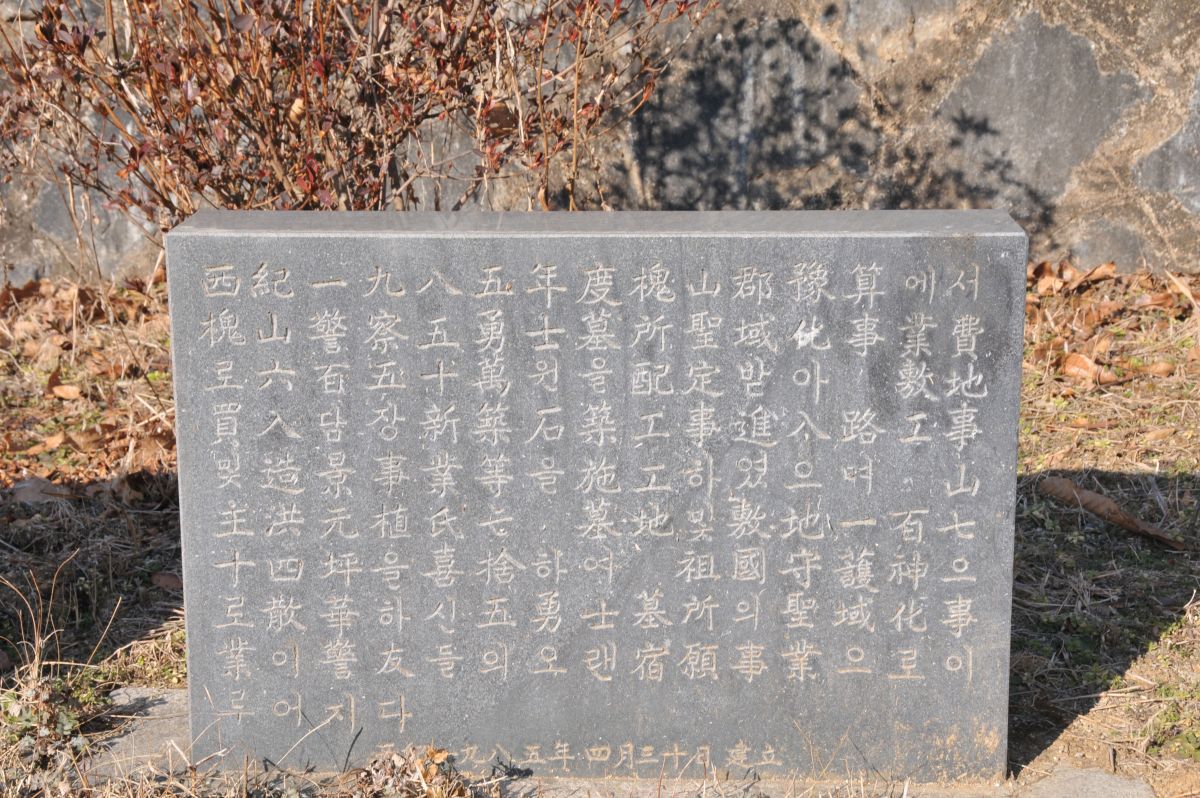 西紀一九八五年度槐山郡豫算에서
槐山警察五勇士墓所聖域化事業費
로六百五十萬원을配定받아 敷地
買入담장新築石築工事進入路工事
및造景事業等을施工하였으며 山
主洪元植氏도 墓地및敷地一百七
十四坪을喜捨하여 祖國守護神으
로散華하신五勇士墓所의聖域化事
業이警友들의오랜宿願事業으로이
루어지다
一九八五年 四月三十日 建立